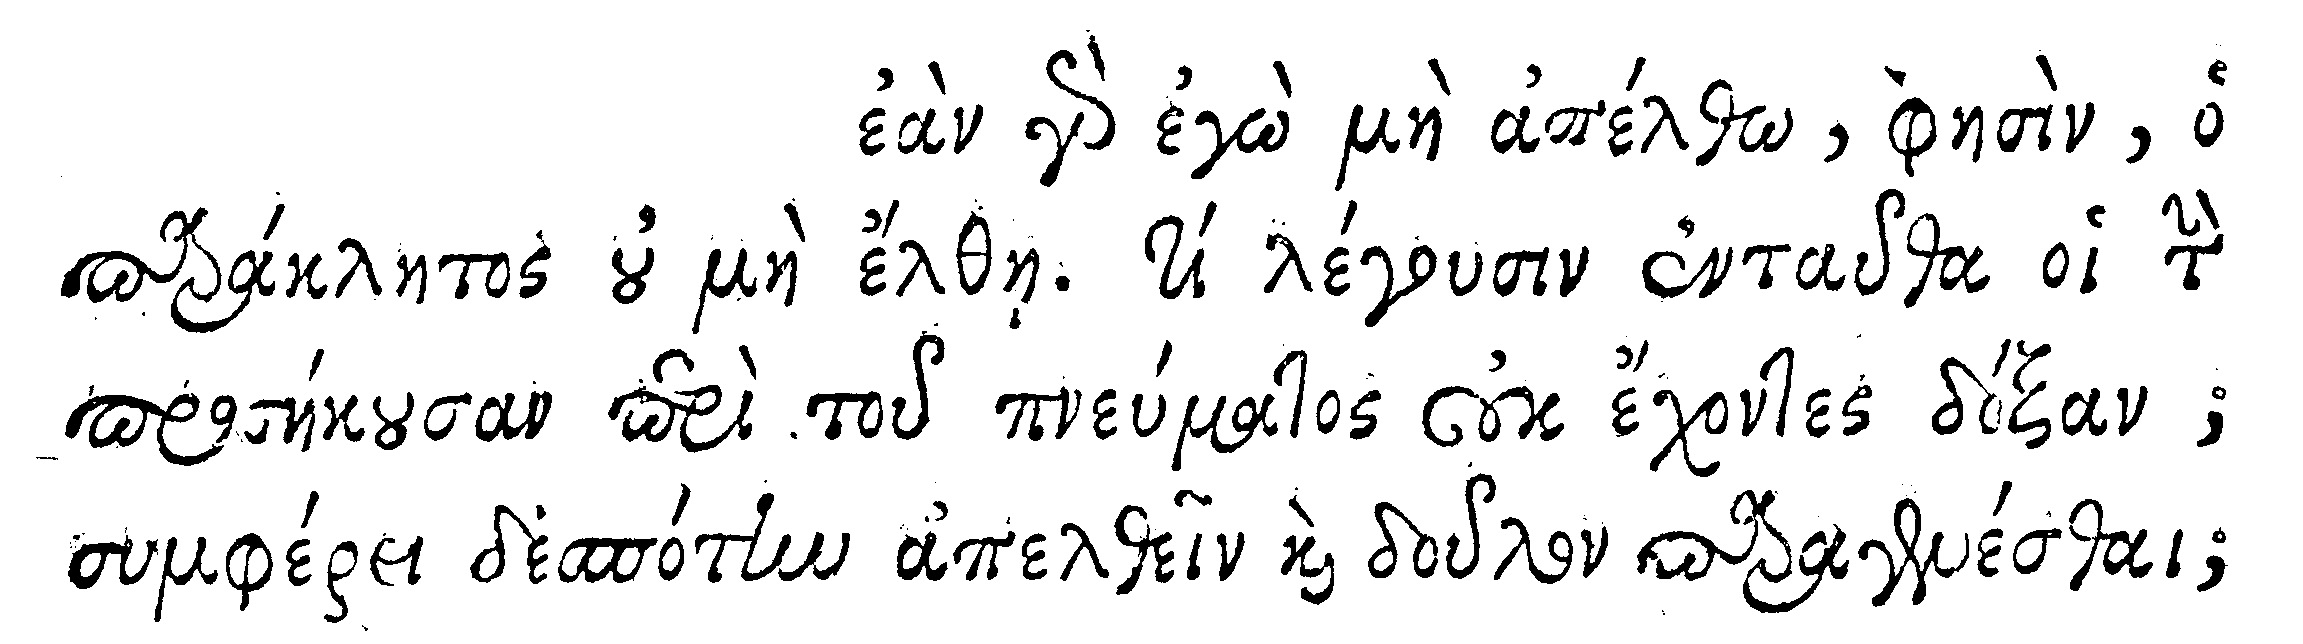 ἐὰν γὰρ ἐγὼ μὴ ἀπέλθω, φησὶν, ὁ
παράκλητος οὐ μὴ ἔλθῃ. τί λέγουσιν ἐνταῦθα οἱ τὴν
προσήκουσαν περὶ τοῦ πνεύματος οὐκ ἔχοντες δόξαν;
συμφέρει δεσπότην ἀπελθεῖν καὶ δοῦλον παραγενέσθαι;